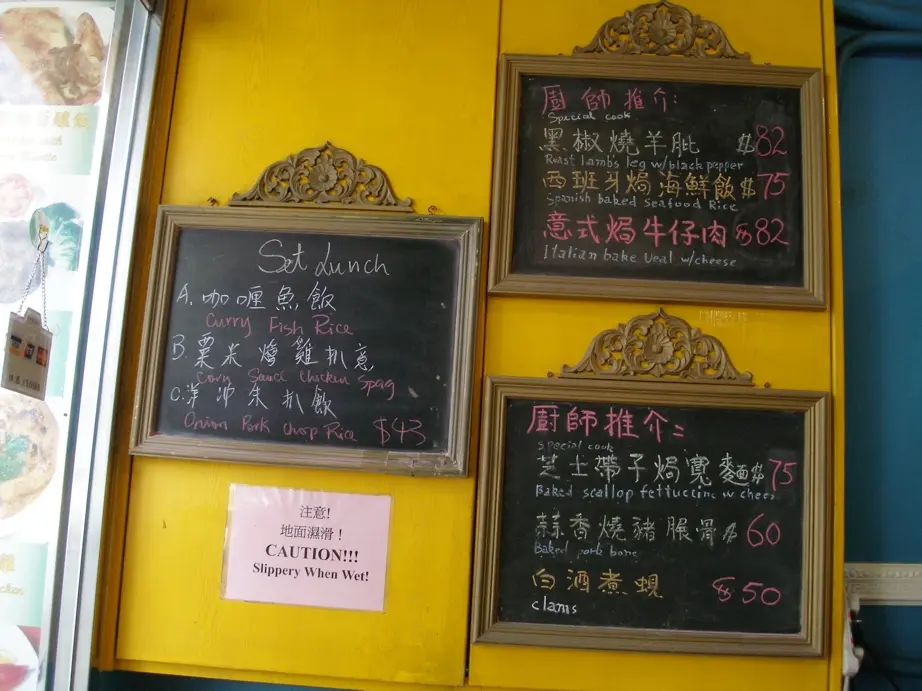 Set Lunch
A. 咖喱魚飯
Curry Fish Rice
B. 粟米燴雞扒意
Corn Sauce Chicken Spag
C. 洋沖朱扒飯
Onion Pork Chop Rice $43
注意!
地面濕滑！
CAUTION!!!
Slippery When Wet!
廚師推介:
Special cook
黑椒燒羊肶 $82
Roast lambs leg w/black pepper
西班牙焗海鮮飯 $75
Spanish baked Seafood Rice
意式焗牛仔肉 $82
Italian bake Veal w/cheese
廚師推介:
special cook
芝士帶子焗寬麵 $75
Baked scallop fettuccine w chees
蒜香燒豬脹骨 $60
Baked pork bone
白酒煮蜆 $50
clams